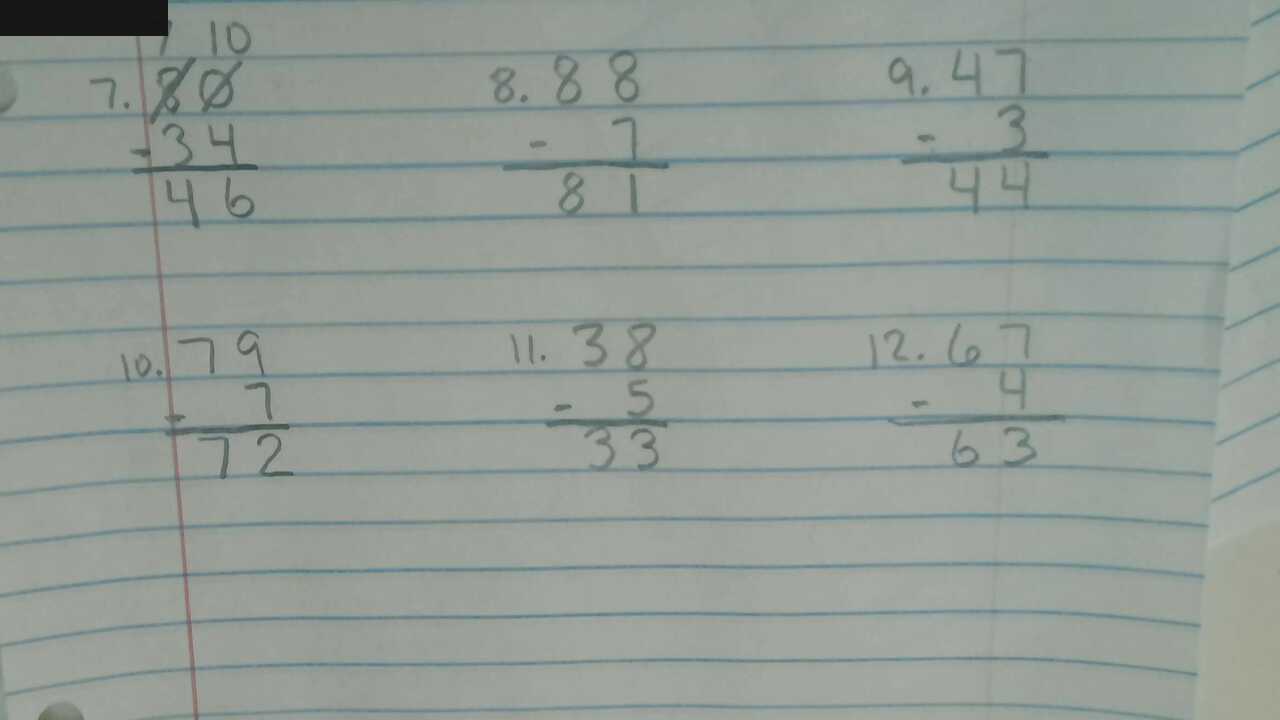 7 10
7. 80 8. 88 9. 47
- 34 - 7 - 3
46 81 44
10. 79 11. 38 12. 67
- 7 - 5 - 4
72 33 63